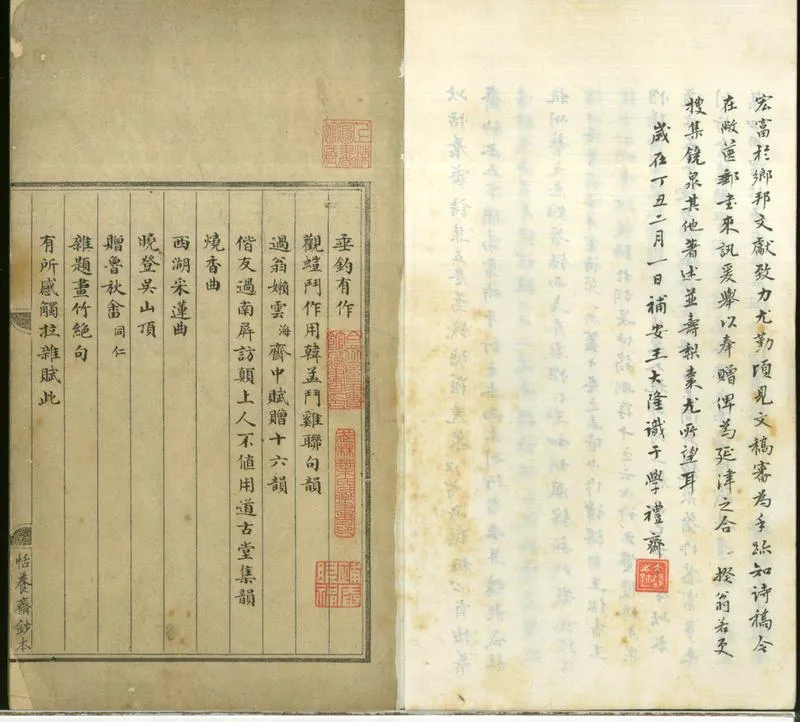 宏富於鄉邦文獻致力尤勤頃見文稿審為手跡知詩稿今
在敝篋郵書來訊爰舉以奉贈俾為延津之合揆翁若更
搜集鏡泉其他著述並壽梨棗尤所望耳
歲在丁丑二月一日補安王大隆識于學禮齋
上海圖書館藏
垂釣有作
合眾圖書館藏書印
武林葉氏藏書印
觀螘鬥作用韓孟鬥雞聯句韻
過翁嬾雲海齋中賦贈十六韻
偕友過南屏訪顛上人不值用道古堂集韻
燒香曲
西湖采蓮曲
曉登吳山頂
贈魯秋畬同仁
雜題畫竹絕句
有所感觸拉雜賦此
恬養齋鈔本